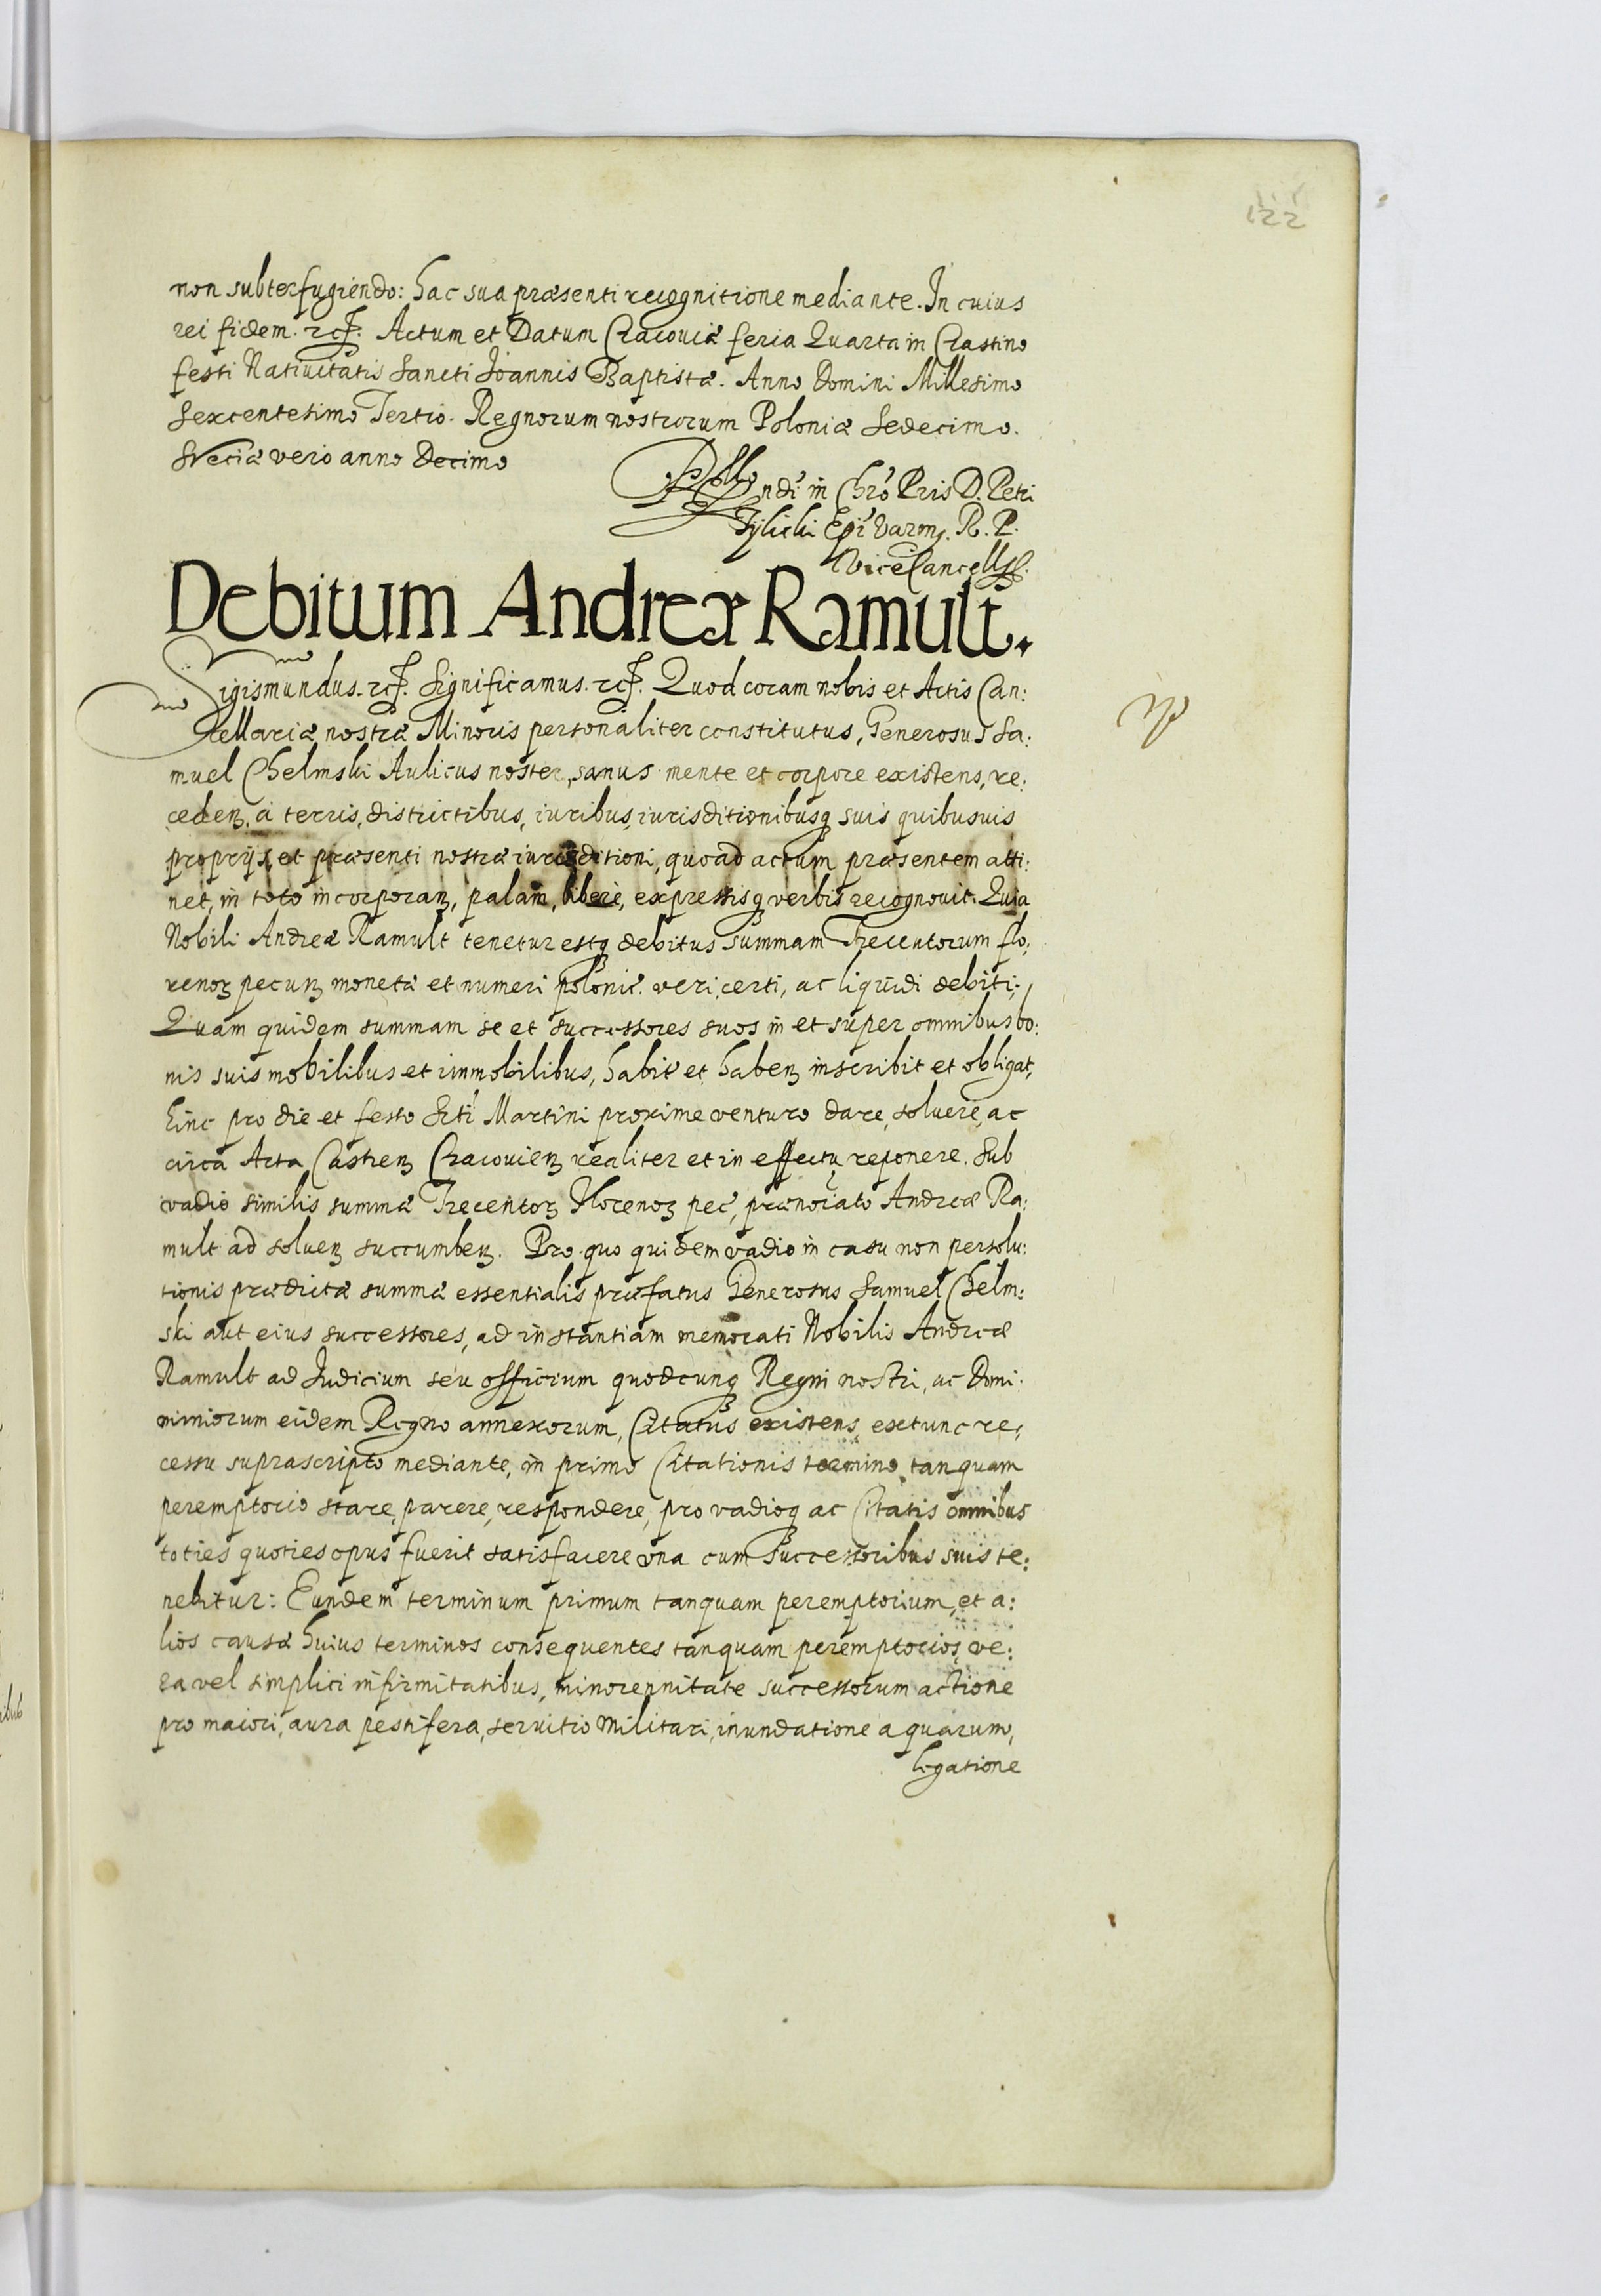 122
non subterfugiendo: hac sua præsenti recognitione mediante. In cuius
rei fidem. etc. Actum et Datum Cracouiæ feria Quarta in Crastino
festi Natiuitatis Sancti Joannis Baptistæ. Anno Domini Millesimo
Sexcentesimo Tertio. Regnorum nostrorum Poloniæ Sedecimo.
Sveciæ vero anno Decimo
ndi in Chro Pris D. Petri
Tylicki Epi Varm. R. P.
ViceCancell.
Debitum Andreæ Ramult.
Sigismundus. etc. Significamus. etc. Quod coram nobis et Actis Can:
cellariæ nostræ Minoris personaliter constitutus, Generosus Sa:
muel Chelmski Aulicus noster, sanus mente et corpore existens, re:
ceden. a terris, districtibus, iuribus, iurisditionibusq suis quibusuis
proprijs, et præsenti nostræ iurisditioni, quoad actum præsentem atti:
net, in toto incorporan, palam, libere, expressisq verbis recognouit. Quia
Nobili Andreæ Ramult tenetur estq debitus summam Trecentorum flo:
renoꝝ pecun monetæ et numeri polonic. veri, certi, ac liquidi debiti;
Quam quidem summam se et successores suos in et super omnibus bo:
nis suis mobilibus et immobilibus, habit et haben inscribit et obligat,
hinc pro die et festo Scti Martini proxime venturo dare, soluere, ac
circa Acta Castren Cracouien realiter et in effectu reponere. Sub
vadio similis summæ Trecentoꝝ Florenoꝝ pec, prænoiato Andreæ Ra:
mult ad soluen succumben. Pro quo quidem vadio in casu non persolu:
tionis prædictæ summæ essentialis præfatus Generosus Samuel Chelm:
ski aut eius successores, ad instantiam memorati Nobilis Andreæ
Ramult ad Judicium seu officium quodcunq Regni nostri, ac Domi:
niniorum eidem Regno annexorum, Citatus existens, extunc re:
cessu suprascripto mediante, in primo Citationis termino tanquam
peremptorio stare, parere, respondere, pro vadioq ac Citatis omnibus
toties quoties opus fuerit satisfacere vna cum successoribus suis te:
nebitur: Eundem terminum primum tanquam peremptorium, et a:
lios causæ huius terminos consequentes tanquam peremptorios, ve:
ra vel simplici infirmitatibus, minorennitate successorum actione
pro maiori, aura pestifera, seruitio militari, inundatione aquarum,
legatione